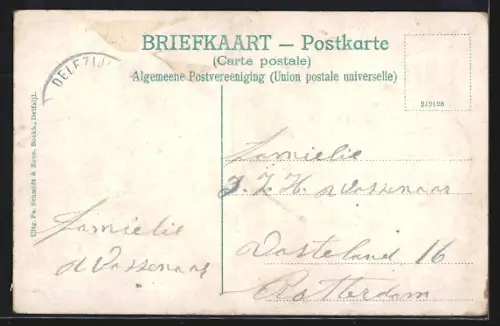 DELFZIJL
BRIEFKAART — Postkarte
(Carte postale)
Algemeene Postvereeniging (Union postale universelle)
212128
Uitg. Fa. Schmidt & Zoon, Boekh., Delfzijl.
Familie
J. Z. H. d Vassenaar
Oosteland 16
Rotterdam
Familie
d Vassenaar